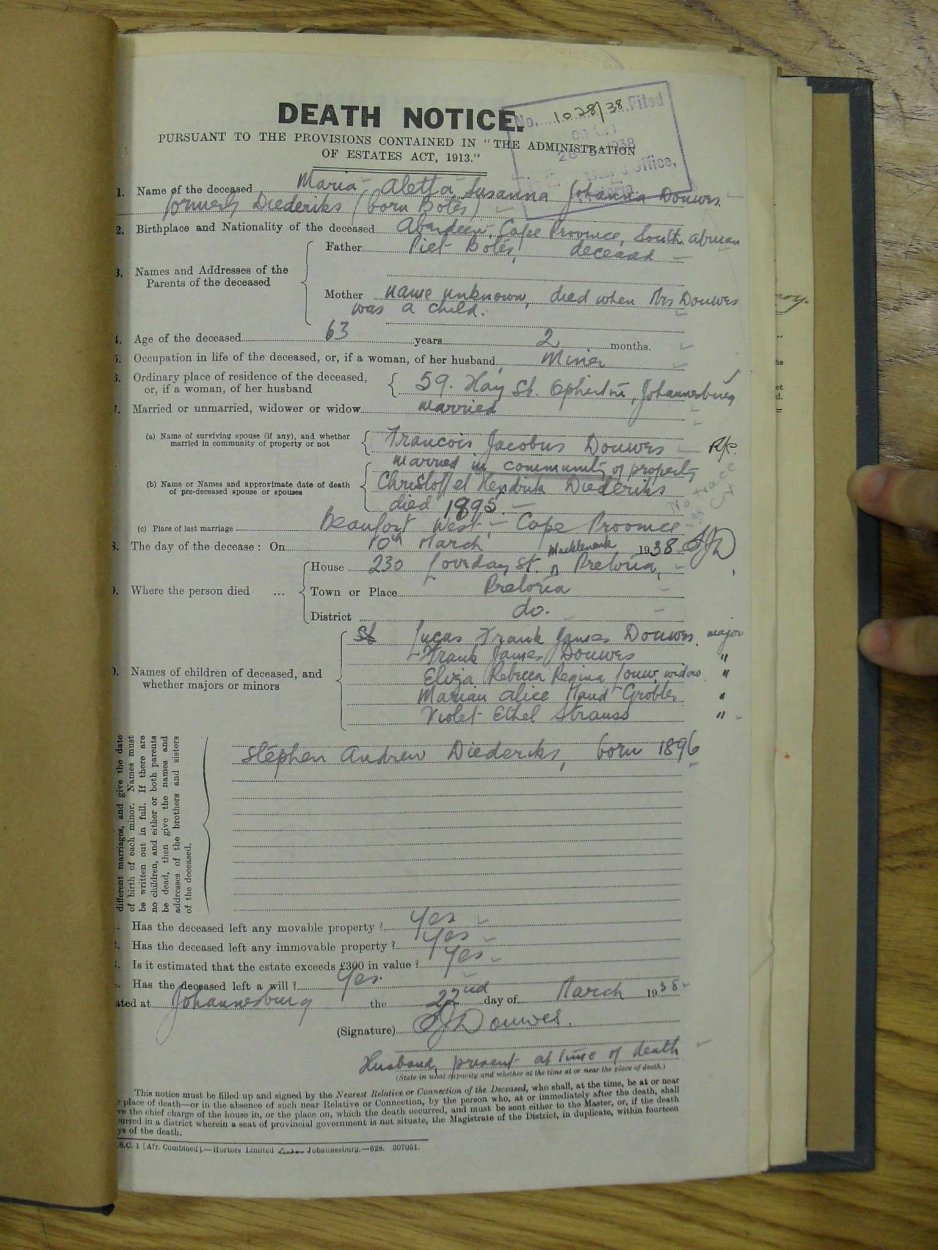 DEATH NOTICE.
No. 1028/38 Filed
PURSUANT TO THE PROVISIONS CONTAINED IN "THE ADMINISTRATION
OF ESTATES ACT, 1913."
Office,
1. Name of the deceased Maria Aletta Susanna Johanna Douwes
formerly Diederiks (born Botes)
2. Birthplace and Nationality of the deceased Aberdeen, Cape Province, South African
3. Names and Addresses of the Parents of the deceased
Father Piet Botes, deceased
Mother name unknown, died when Mrs Douwes
was a child.
4. Age of the deceased 63 years 2 months.
5. Occupation in life of the deceased, or, if a woman, of her husband Miner
6. Ordinary place of residence of the deceased,
or, if a woman, of her husband 59. Hay St. Ophirton, Johannesburg
7. Married or unmarried, widower or widow married
(a) Name of surviving spouse (if any), and whether
married in community of property or not Francois Jacobus Douwes
married in community of property
(b) Name or Names and approximate date of death
of pre-deceased spouse or spouses Christoffel Hendrik Diederiks
died 1895
(c) Place of last marriage Beaufort West - Cape Province
8. The day of the decease: On 10th March 1938 FJD
9. Where the person died ...
House 230 Loveday St. Muckleneuk Pretoria,
Town or Place Pretoria
District do.
10. Names of children of deceased, and
whether majors or minors
Lucas Frank James Douwes major
Frank James Douwes "
Eliza Rebecca Regina Louw, widow "
Marian Alice Maud Grobler "
Violet Ethel Strauss "
different marriages, and give the date
of birth of each minor. Names must
be written out in full. If there are
no children, and either or both parents
be dead, then give the names and
addresses of the brothers and sisters
of the deceased.
Stephen Andrew Diederiks, born 1896
Has the deceased left any movable property? Yes
Has the deceased left any immovable property? Yes
Is it estimated that the estate exceeds £300 in value? Yes
Has the deceased left a will? Yes.
ated at Johannesburg the 22nd day of March 1938
(Signature) FJDouwes.
Husband, present at time of death
(State in what capacity and whether at the time at or near the place of death.)
This notice must be filled up and signed by the Nearest Relative or Connection of the Deceased, who shall, at the time, be at or near
place of death—or in the absence of such near Relative or Connection, by the person who, at or immediately after the death, shall
ve the chief charge of the house in, or the place on, which the death occurred, and must be sent either to the Master, or, if the death
urred in a district wherein a seat of provincial government is not situate, the Magistrate of the District, in duplicate, within fourteen
ys of the death.
B.C. 1 (Afr. Combined).—Hortors Limited Johannesburg.—628. 307051.